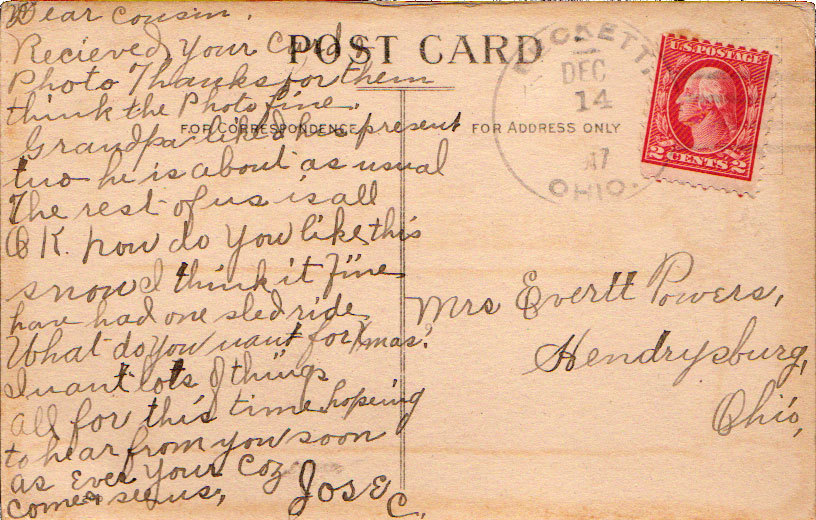 Dear Cousin.
Recieved Your Card &
Photo Thanks for them
think the Photo fine.
Grandpa liked his present
two he is about as usual
The rest of us is all
O K. how do you like this
snow I think it fine
have had one sled ride
What do you want for Xmas?
I want lots of things
all for this time hoping
to hear from you soon
as Ever Your Coz
Come & see us,
Jose C.
POST CARD
FOR CORRESPONDENCE
FOR ADDRESS ONLY
DEC
14
17
OHIO.
U.S. POSTAGE
2 CENTS 2
Mrs Evertt Powers,
Hendrysburg,
Ohio,